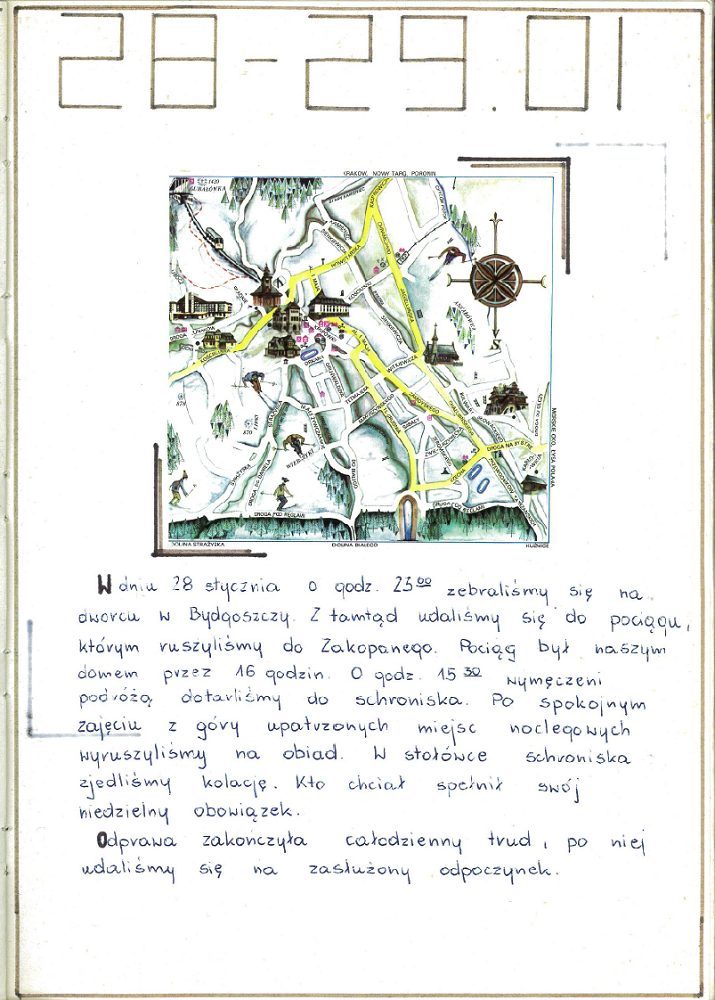 28-29.01
KRAKÓW, NOWY TARG, PORONIN
GUBAŁÓWKA
NOWOTARSKA
KOŚCIELISKA
MORSKIE OKO, ŁYSA POLANA
DROGA POD REGLAMI
DROGA POD REGLAMI
DOLINA STRĄŻYSKA
DOLINA BIAŁEGO
KUŹNICE
W dniu 28 stycznia o godz. 23⁰⁰ zebraliśmy się na
dworcu w Bydgoszczy. Z tamtąd udaliśmy się do pociągu,
którym ruszyliśmy do Zakopanego. Pociąg był naszym
domem przez 16 godzin. O godz. 15³⁰ wymęczeni
podróżą dotarliśmy do schroniska. Po spokojnym
zajęciu z góry upatrzonych miejsc noclegowych
wyruszyliśmy na obiad. W stołówce schroniska
zjedliśmy kolację. Kto chciał spełnił swój
niedzielny obowiązek.
Odprawa zakończyła całodzienny trud, po niej
udaliśmy się na zasłużony odpoczynek.